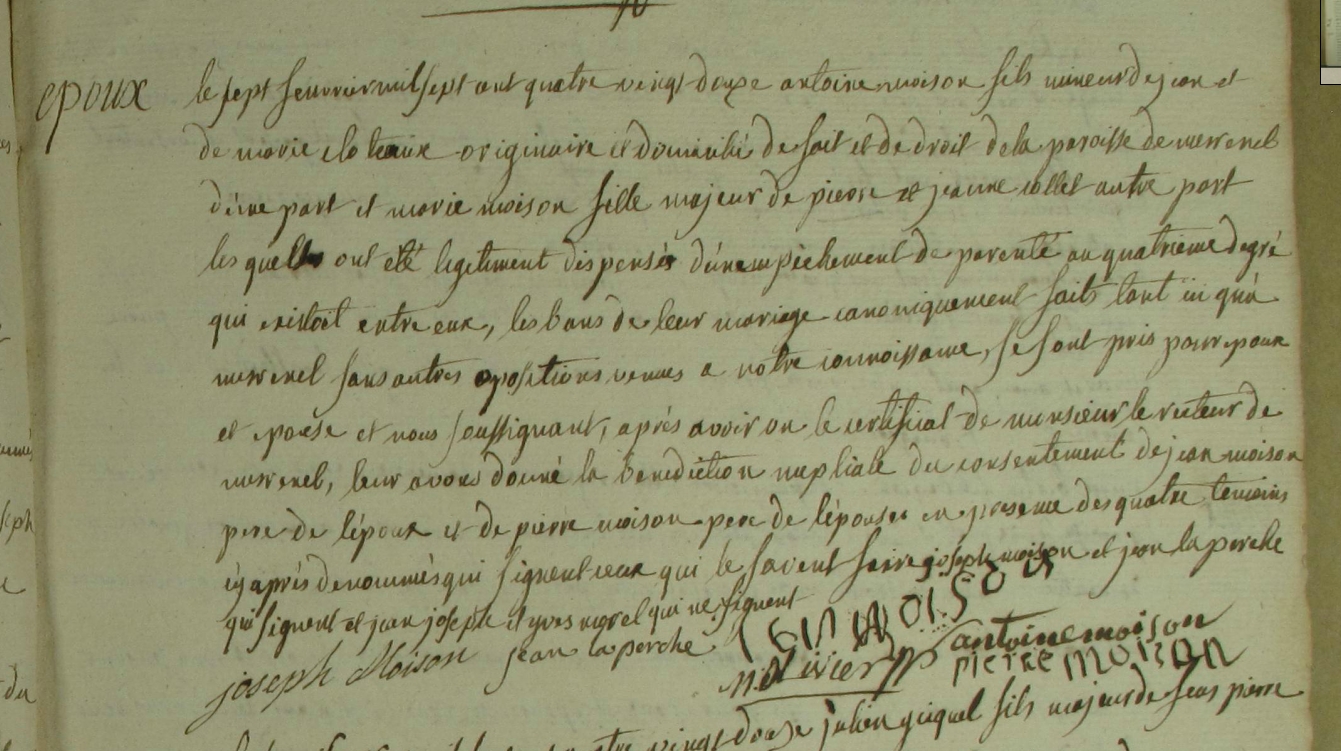 epoux
le sept fevrier mil sept cent quatre vingt douze antoine moison fils mineur de jean et
de marie eloteaux originaire et domicilié de fait et de droit de la paroisse de merenel
d'une part et marie moison fille majeur de pierre et jeanne collet autre part
les quells ont eté legitiment dispensés d'un empêchement de parenté au quatrieme degré
qui existoit entre eux, les bans de leur mariage canoniquement faits tant ici qu'à
merenel sans autres opositions venues a notre connoissance, se sont pris pour epoux
et epouse et nous soussignant, après avoir vu le certificat de monsieur le recteur de
merenel, leur avons donné la benediction nuptiale du consentement de jean moison
pere de l'époux et de pierre moison pere de l'épouse en presence des quatre temoins
cy après denommés qui signent ceux qui le savent faire joseph moison et jean la perche
qui signent et jean joseph et yves morel qui ne signent
joseph Moison jean la perche
jen moison
antoine moison
pierre moison
douze julien guiguel fils majeur de feus pierre